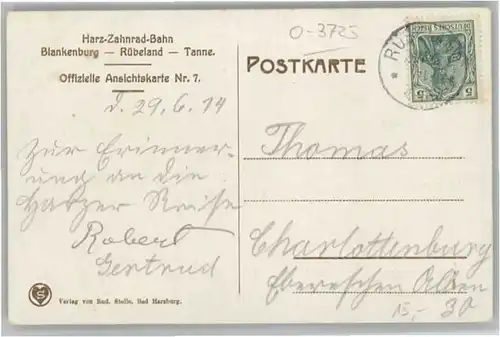 Harz-Zahnrad-Bahn
Blankenburg — Rübeland — Tanne.
Offizielle Ansichtskarte Nr. 7.
O-3725
POSTKARTE
DEUTSCHES REICH
5 5
RÜ
d. 29.6.14
Zur Erinner-
ung an die
Harzer Reise
Robert
Gertrud
Thomas
Charlottenburg
15,- 30
Verlag von Rud. Stolle, Bad Harzburg.